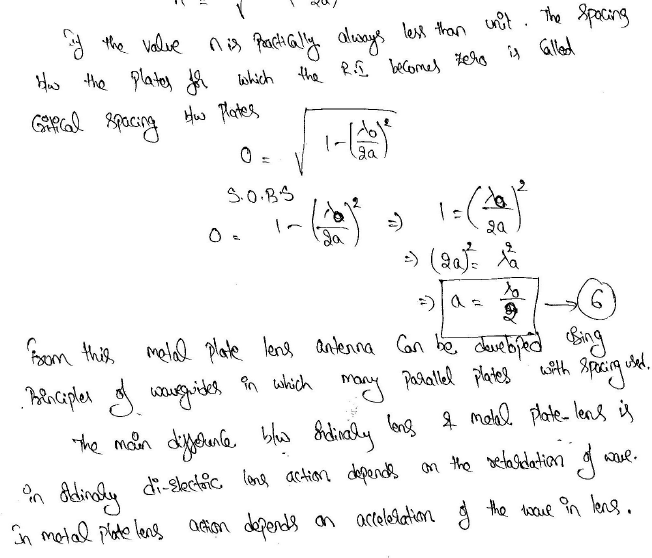 If the value n is practically always less than unit. The spacing
b/w the plates for which the R.I becomes zero is called
Critical spacing b/w plates
0 = √(1-(λ0/2a)²)
S.O.B.S
0 = 1-(λ0/2a)² => 1 = (λ0/2a)²
=> (2a)² = λa²
=> a = λ0/2 → 6
From this metal plate lens antenna can be developed using
Principles of waveguides in which many parallel plates with spacing used.
The main difference b/w ordinary lens & metal plate-lens is
in ordinary di-electric lens action depends on the retardation of wave.
In metal plate lens action depends on acceleration of the wave in lens.